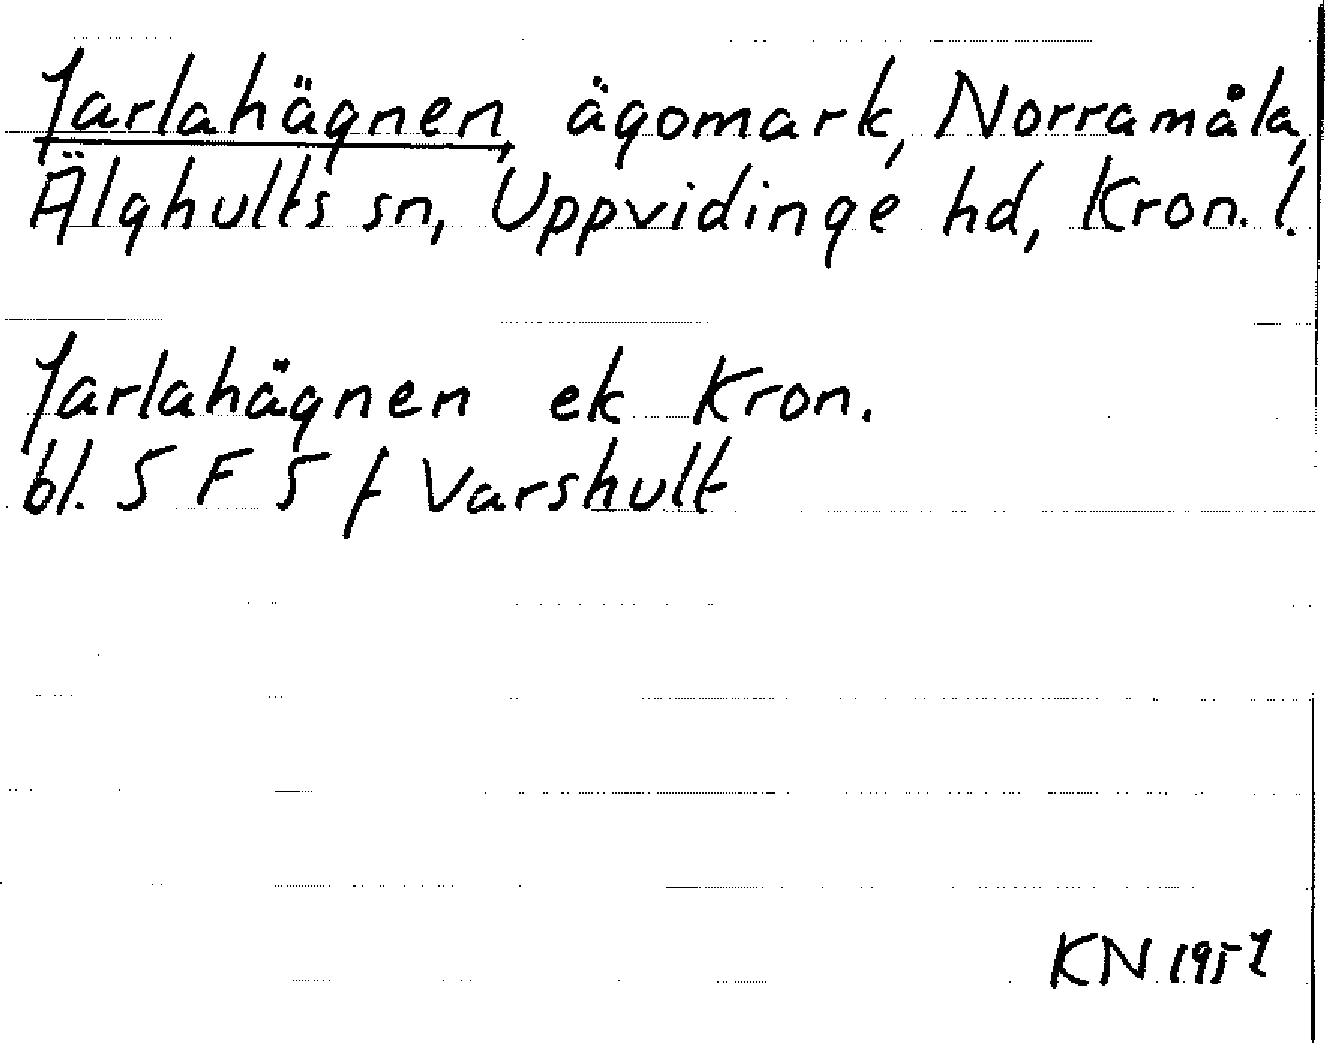 Jarlahägnen, ägomark, Norramåla,
Älghults sn, Uppvidinge hd, Kron. l.
Jarlahägnen ek Kron.
bl. 5 F 5 f Varshult
KN 1957